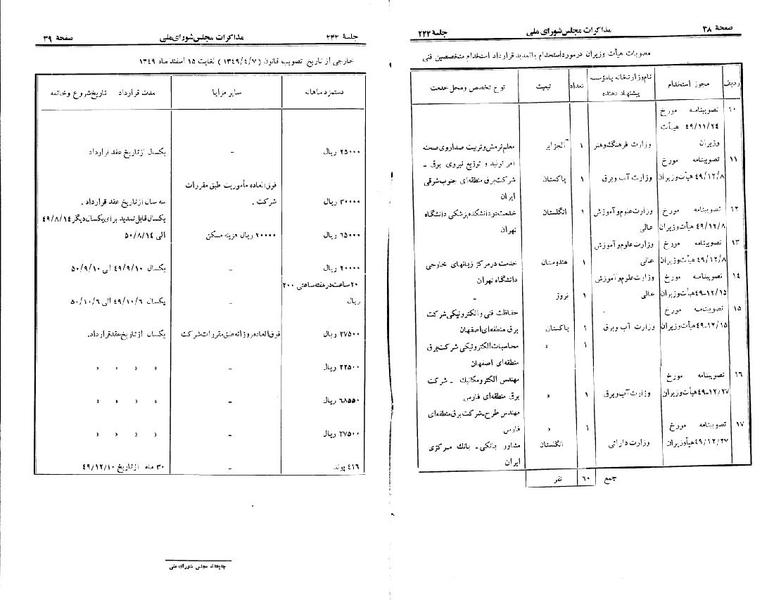 صفحه ۳۸
مذاکرات مجلس شورای ملی
جلسه ۲۲۲
مصوبات هیأت وزیران در مورد استخدام یا تمدید قرارداد استخدام متخصصین فنی
ردیف
مجوز استخدام
نام وزارتخانه یا مؤسسه پیشنهاد دهنده
تعداد
تبعیت
نوع تخصص و محل خدمت
۱۰
تصویبنامه مورخ
۴۹/۱۱/۲۴ هیأت
وزیران
وزارت فرهنگ و هنر
۱
الجزایر
معلم نرمش و تربیت صدا روی صحنه
۱۱
تصویبنامه مورخ
۴۹/۱۲/۸ هیأت وزیران
وزارت آب و برق
۱
پاکستان
امر تولید و توزیع نیروی برق -
شرکت برق منطقه‌ای جنوب شرقی
ایران
۱۲
تصویبنامه مورخ
۴۹/۱۲/۸ هیأت وزیران
وزارت علوم و آموزش
عالی
۱
انگلستان
خدمت در دانشکده پزشکی دانشگاه
تهران
۱۳
تصویبنامه مورخ
۴۹/۱۲/۸ هیأت وزیران
وزارت علوم و آموزش
عالی
۱
هندوستان
خدمت در مرکز زبانهای خارجی
دانشگاه تهران
۱۴
تصویبنامه مورخ
۴۹-۱۲/۱۵ هیأت وزیران
وزارت علوم و آموزش
عالی
۱
نروژ
۱۵
تصویبنامه مورخ
۴۹-۱۲/۱۵ هیأت وزیران
وزارت آب و برق
پاکستان
حفاظت فنی و الکترونیکی شرکت
برق منطقه‌ای اصفهان
۱
»
محاسبات الکترونیکی شرکت برق
منطقه‌ای اصفهان
۱۶
تصویبنامه مورخ
۴۹-۱۲/۲۷ هیأت وزیران
وزارت آب و برق
۱
»
مهندس الکترومکانیک - شرکت
برق منطقه‌ای فارس
۱
»
مهندس طرح - شرکت برق منطقه‌ای
فارس
۱۷
تصویبنامه مورخ
۴۹/۱۲/۲۷ هیأت وزیران
وزارت دارائی
انگلستان
مشاور بانکی - بانک مرکزی
ایران
جمع
۶۰
نفر
جلسه ۲۲۲
مذاکرات مجلس شورای ملی
صفحه ۳۹
خارجی از تاریخ تصویب قانون (۱۳۴۹/۴/۷) لغایت ۱۵ اسفند ماه ۱۳۴۹
دستمزد ماهانه
سایر مزایا
مدت قرارداد تاریخ شروع و خاتمه
۲۵۰۰۰ ریال
-
یکسال از تاریخ عقد قرارداد
۳۰۰۰۰ ریال
فوق العاده مأموریت طبق مقررات
شرکت .
سه سال از تاریخ عقد قرارداد .
۶۵۰۰۰ ریال
۲۰۰۰۰ ریال هزینه مسکن
یکسال قابل تمدید برای یکسال دیگر ۴۹/۸/۱۴
الی ۵۰/۸/۱۴
۲۰۰۰۰ ریال
-
یکسال ۴۹/۹/۱۰ الی ۵۰/۹/۱۰
۲۰ ساعت در هفته ساعتی ۲۰۰
ریال
-
یکسال ۴۹/۱۰/۶ الی ۵۰/۱۰/۶
۲۷۵۰۰ ریال
فوق العاده روزانه طبق مقررات شرکت
یکسال از تاریخ عقد قرارداد.
۲۲۵۰۰ ریال
-
» » » »
۶۸۵۵۰ ریال
-
» » » »
۲۷۵۰۰ ریال
-
» » » »
۴۱۶ پوند
-
۳۰ ماه از تاریخ ۴۹/۱۲/۱۰
چاپخانه مجلس شورای ملی